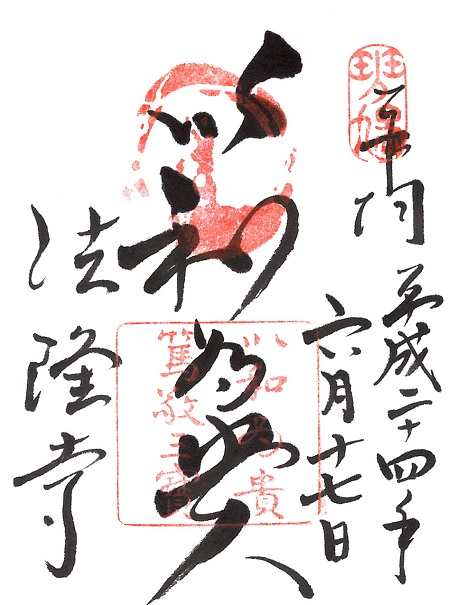 斑鳩
奉拝
平成二十四年
六月十七日
以和為貴
以和為貴
篤敬三寶
法隆寺